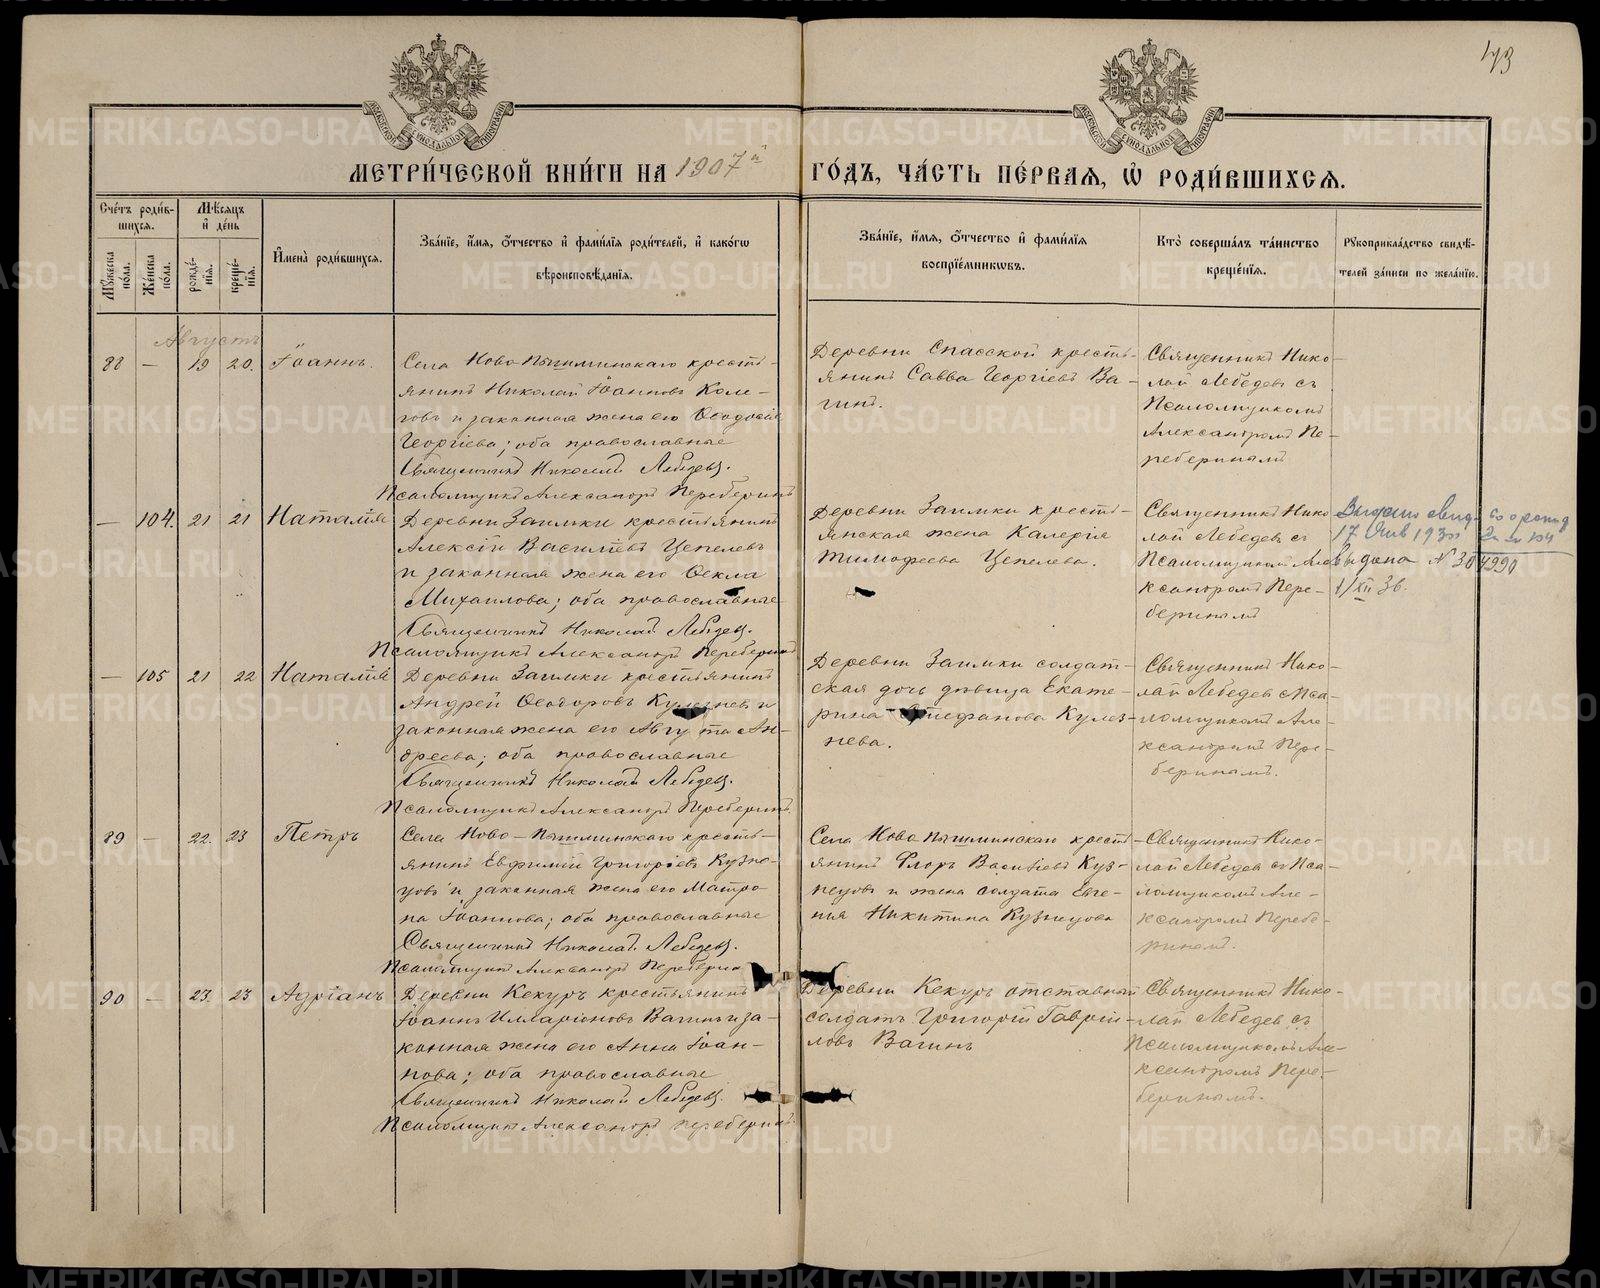 43
МЕТРИ́ЧЕСКОЙ КНИ́ГИ НА 1907й ГО́ДЪ, ЧА́СТЬ ПЕ́РВАЯ, Ѡ҆ РОДИ́ВШИХСЯ.
Сче́тъ роди́в-
шихся.
Мꙋ́жеска по́ла.
Же́нска по́ла.
Мѣ́сяцъ и҆ де́нь
рожде́нїя.
креще́нїя.
И҆мена̀ роди́вшихся.
Зва́нїе, и҆́мя, ѻ҆́тчество и҆ фами́лїя роди́телей, и҆ како́гѡ
вѣроисповѣ́данїя.
Зва́нїе, и҆́мя, ѻ҆́тчество и҆ фами́лїя
воспрїе́мникѡвъ.
Кто̀ соверша́лъ та́инство
креще́нїя.
Рꙋкоприкла́дство свидѣ́-
телей за́писи по жела́нїю.
Августъ
88 — 19 20. Іоаннъ.
Села Ново-Пышминскаго кресть-
янинъ Николай Іоанновъ Коле-
говъ и законная жена его Ѳеодосія
Георгіева; оба православные
Священникъ Николай Лебедевъ.
Псаломщикъ Александръ Переберинъ
Деревни Спасской кресть-
янинъ Савва Георгіевъ Ва-
гинъ.
Священникъ Нико-
лай Лебедевъ съ
Псаломщикомъ
Александромъ Пе-
реберинымъ
— 104. 21 21 Наталія
Деревни Заимки крестьянинъ
Алексій Васильевъ Цепелевъ
и законная жена его Ѳекла
Михаилова; оба православные
Священникъ Николай Лебедевъ.
Псаломщикъ Александръ Переберинъ
Деревни Заимки кресть-
янская жена Калерія
Тимофеева Цепелева.
Священникъ Нико
лай Лебедевъ съ
Псаломщикомъ Але
ксандромъ Пере-
беринымъ
Выдано свид.
17 Янв 193
выдана № 30 4990
1/XII 36.
— 105 21 22 Наталія
Деревни Заимки крестьянинъ
Андрей Ѳеодоровъ Кулезневъ и
законная жена его Августа Ан-
дреева; оба православные
Священникъ Николай Лебедевъ.
Псаломщикъ Александръ Переберинъ.
Деревни Заимки солдат-
ская дочь дѣвица Екате-
рина Стефанова Кулез-
нева.
Священникъ Нико-
лай Лебедевъ съ Пса-
ломщикомъ Але-
ксандромъ Пере-
беринымъ.
89 — 22. 23 Петръ
Села Ново-Пышминскаго кресть-
янинъ Евфимій Григоріевъ Кузне-
цовъ и законная жена его Матро-
на Іоаннова; оба православные
Священникъ Николай Лебедевъ.
Псаломщикъ Александръ Переберин
Села Ново Пышминскаго кресть-
янинъ Флоръ Васильевъ Куз-
нецовъ и жена солдата Евге-
нія Никитина Кузнецова
Священникъ Нико-
лай Лебедевъ съ Пса-
ломщикомъ Але-
ксандромъ Перебе-
ринымъ.
90 — 23. 23 Адріанъ
Деревни Кекуръ крестьянинъ
Іоаннъ Илларіоновъ Вагинъ и за-
конная жена его Анна Іоан-
нова; оба православные
Священникъ Николай Лебедевъ.
Псаломщикъ Александръ Переберинъ
Деревни Кекуръ отставной
солдатъ Григорій Гаврій-
ловъ Вагинъ
Священникъ Нико-
лай Лебедевъ съ
Псаломщикомъ Але-
ксандромъ Пере-
беринымъ.